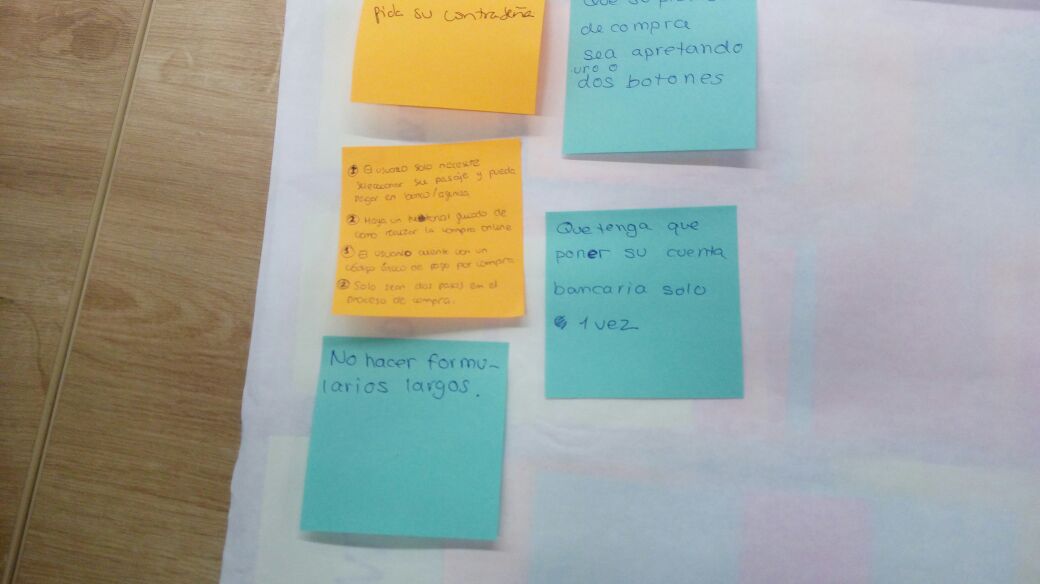 pida su contraseña
de compra
sea apretando
uno o
dos botones
① El usuario solo necesite
seleccionar su pasaje y pueda
pagar en banco/agencia
② Haya un tutorial guiado de
como realizar la compra online
① El usuario cuente con un
código único de pago por compra
② Solo sean dos pasos en el
proceso de compra.
Que tenga que
poner su cuenta
bancaria solo
1 vez
No hacer formu-
larios largos.